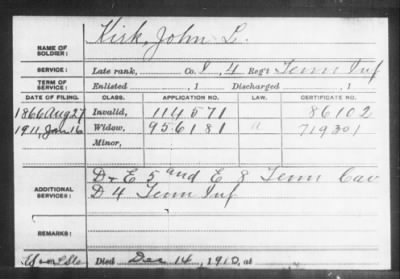 NAME OF SOLDIER: Kirk, John L.
SERVICE: Late rank, Co. I, 4 Reg't Tenn Inf
TERM OF SERVICE: Enlisted , 1 Discharged , 1
DATE OF FILING. CLASS. APPLICATION NO. LAW. CERTIFICATE NO.
1866 Aug 27 Invalid, 114571 86102
1911, Jan 16 Widow, 956181 a 719301
Minor,
ADDITIONAL SERVICES: D & E 5 and E 8 Tenn Cav
D 4 Tenn Inf
REMARKS:
Died Dec 14, 1910, at